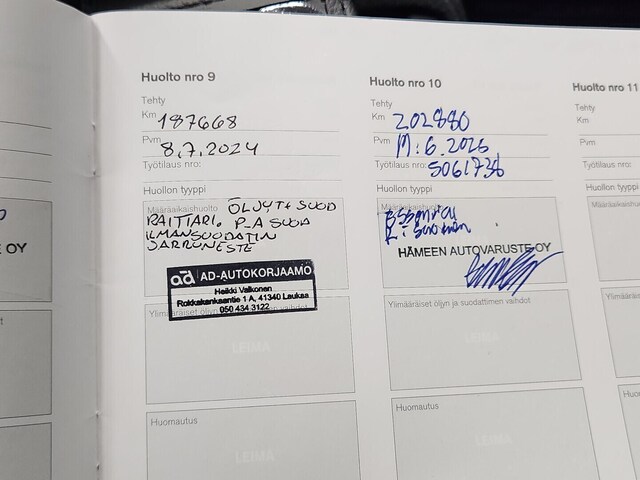 Huolto nro 9
Tehty
Km 187668
Pvm 8.7.2024
Työtilaus nro:
Huollon tyyppi
Määräaikaishuolto ÖLJYT+ SUOD
RAITTARI. P-A SUOD
ILMANSUODATIN
JARRUNESTE
ad AD-AUTOKORJAAMO
Heikki Valkonen
Rokkakankaantie 1 A, 41340 Laukaa
050 434 3122
Ylimääräiset öljyn ja suodattimen vaihdot
LEIMA
Huomautus
LEIMA
Huolto nro 10
Tehty
Km 202880
Pvm 11.6.2025
Työtilaus nro: 5061736
Huollon tyyppi
Määräaikaishuolto
HÄMEEN AUTOVARUSTE OY
Ylimääräiset öljyn ja suodattimen vaihdot
LEIMA
Huomautus
LEIMA
Huolto nro 11
Tehty
Km
Pvm
Työtilaus nro:
E OY